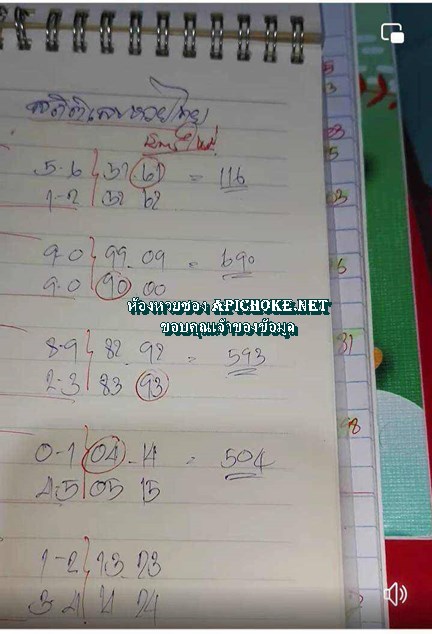 สถิติเลขหวยไทย
5-6 51.61 = 116
1-2 52 62
9-0 99.09 = 690
9-0 90 00
ห้องหวยซอง APICHOKE.NET
ขอบคุณเจ้าของข้อมูล
8-9 82.92 = 593
2-3 83.93
0-1 04.14 = 504
4-5 05 15
1-2 13.23
3-4 14 24